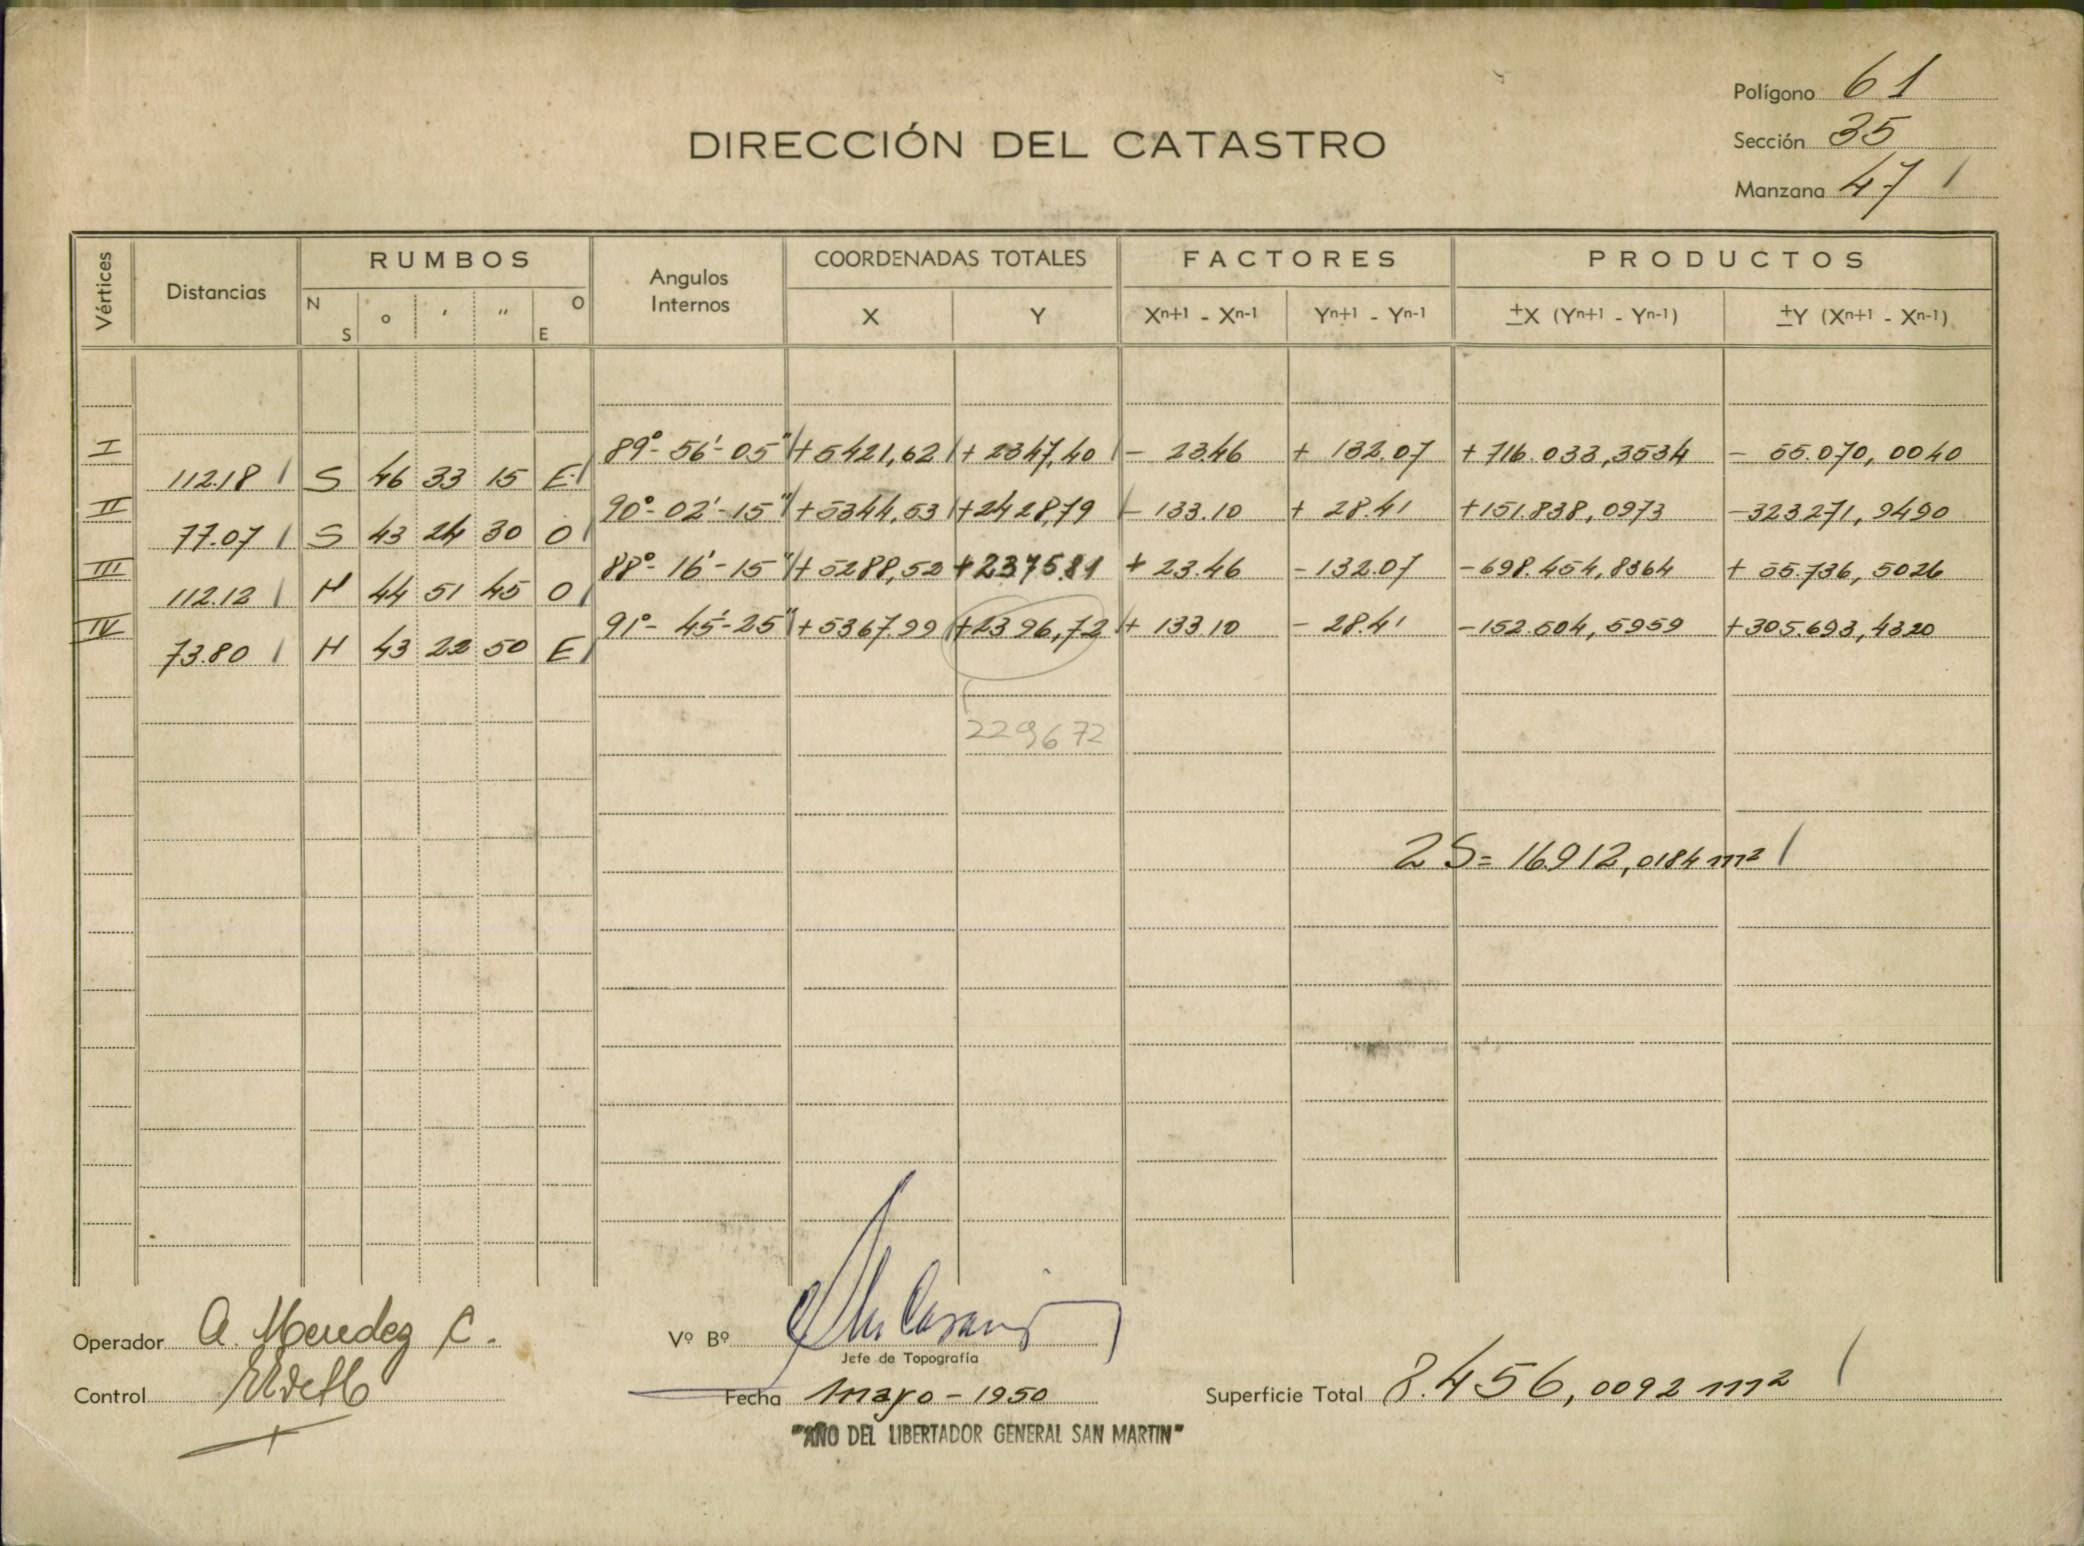 Polígono 61
DIRECCIÓN DEL CATASTRO
Sección 35
Manzana 47
Vértices Distancias RUMBOS Angulos Internos COORDENADAS TOTALES FACTORES PRODUCTOS
N S ° ' " O E X Y Xn+1 - Xn-1 Yn+1 - Yn-1 ±X (Yn+1 - Yn-1) ±Y (Xn+1 - Xn-1)
I 89°-56'-05" +5421,62 +2347,40 - 23.46 + 132.07 +716.033,3534 - 55.070,0040
112.18 S 46 33 15 E
II 90°-02'-15" +5344,53 +2428,79 - 133.10 + 28.41 +151.838,0973 -323.271,9490
77.07 S 43 24 30 O
III 88°-16'-15" +5288,52 +2375.81 + 23.46 -132.07 -698.454,8364 + 55.736,5026
112.12 N 44 51 45 O
IV 91°-45'-25" +5367.99 +2396,72 + 133.10 - 28.41 -152.504,5959 +305.693,4320
73.80 N 43 22 50 E
229672
2S= 16.912,0184 m²
Operador A. Mendez C.
Vº Bº
Jefe de Topografía
Control
Fecha mayo - 1950
Superficie Total 8.456,0092 m²
"AÑO DEL LIBERTADOR GENERAL SAN MARTIN"